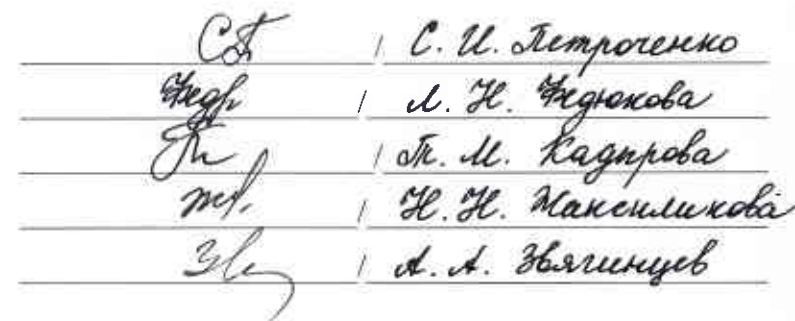 / С. И. Петроченко
Федр / Л. Н. Федюкова
/ Т. М. Кадырова
/ Н. Н. Жаксиликова
Зв / А. А. Звягинцев